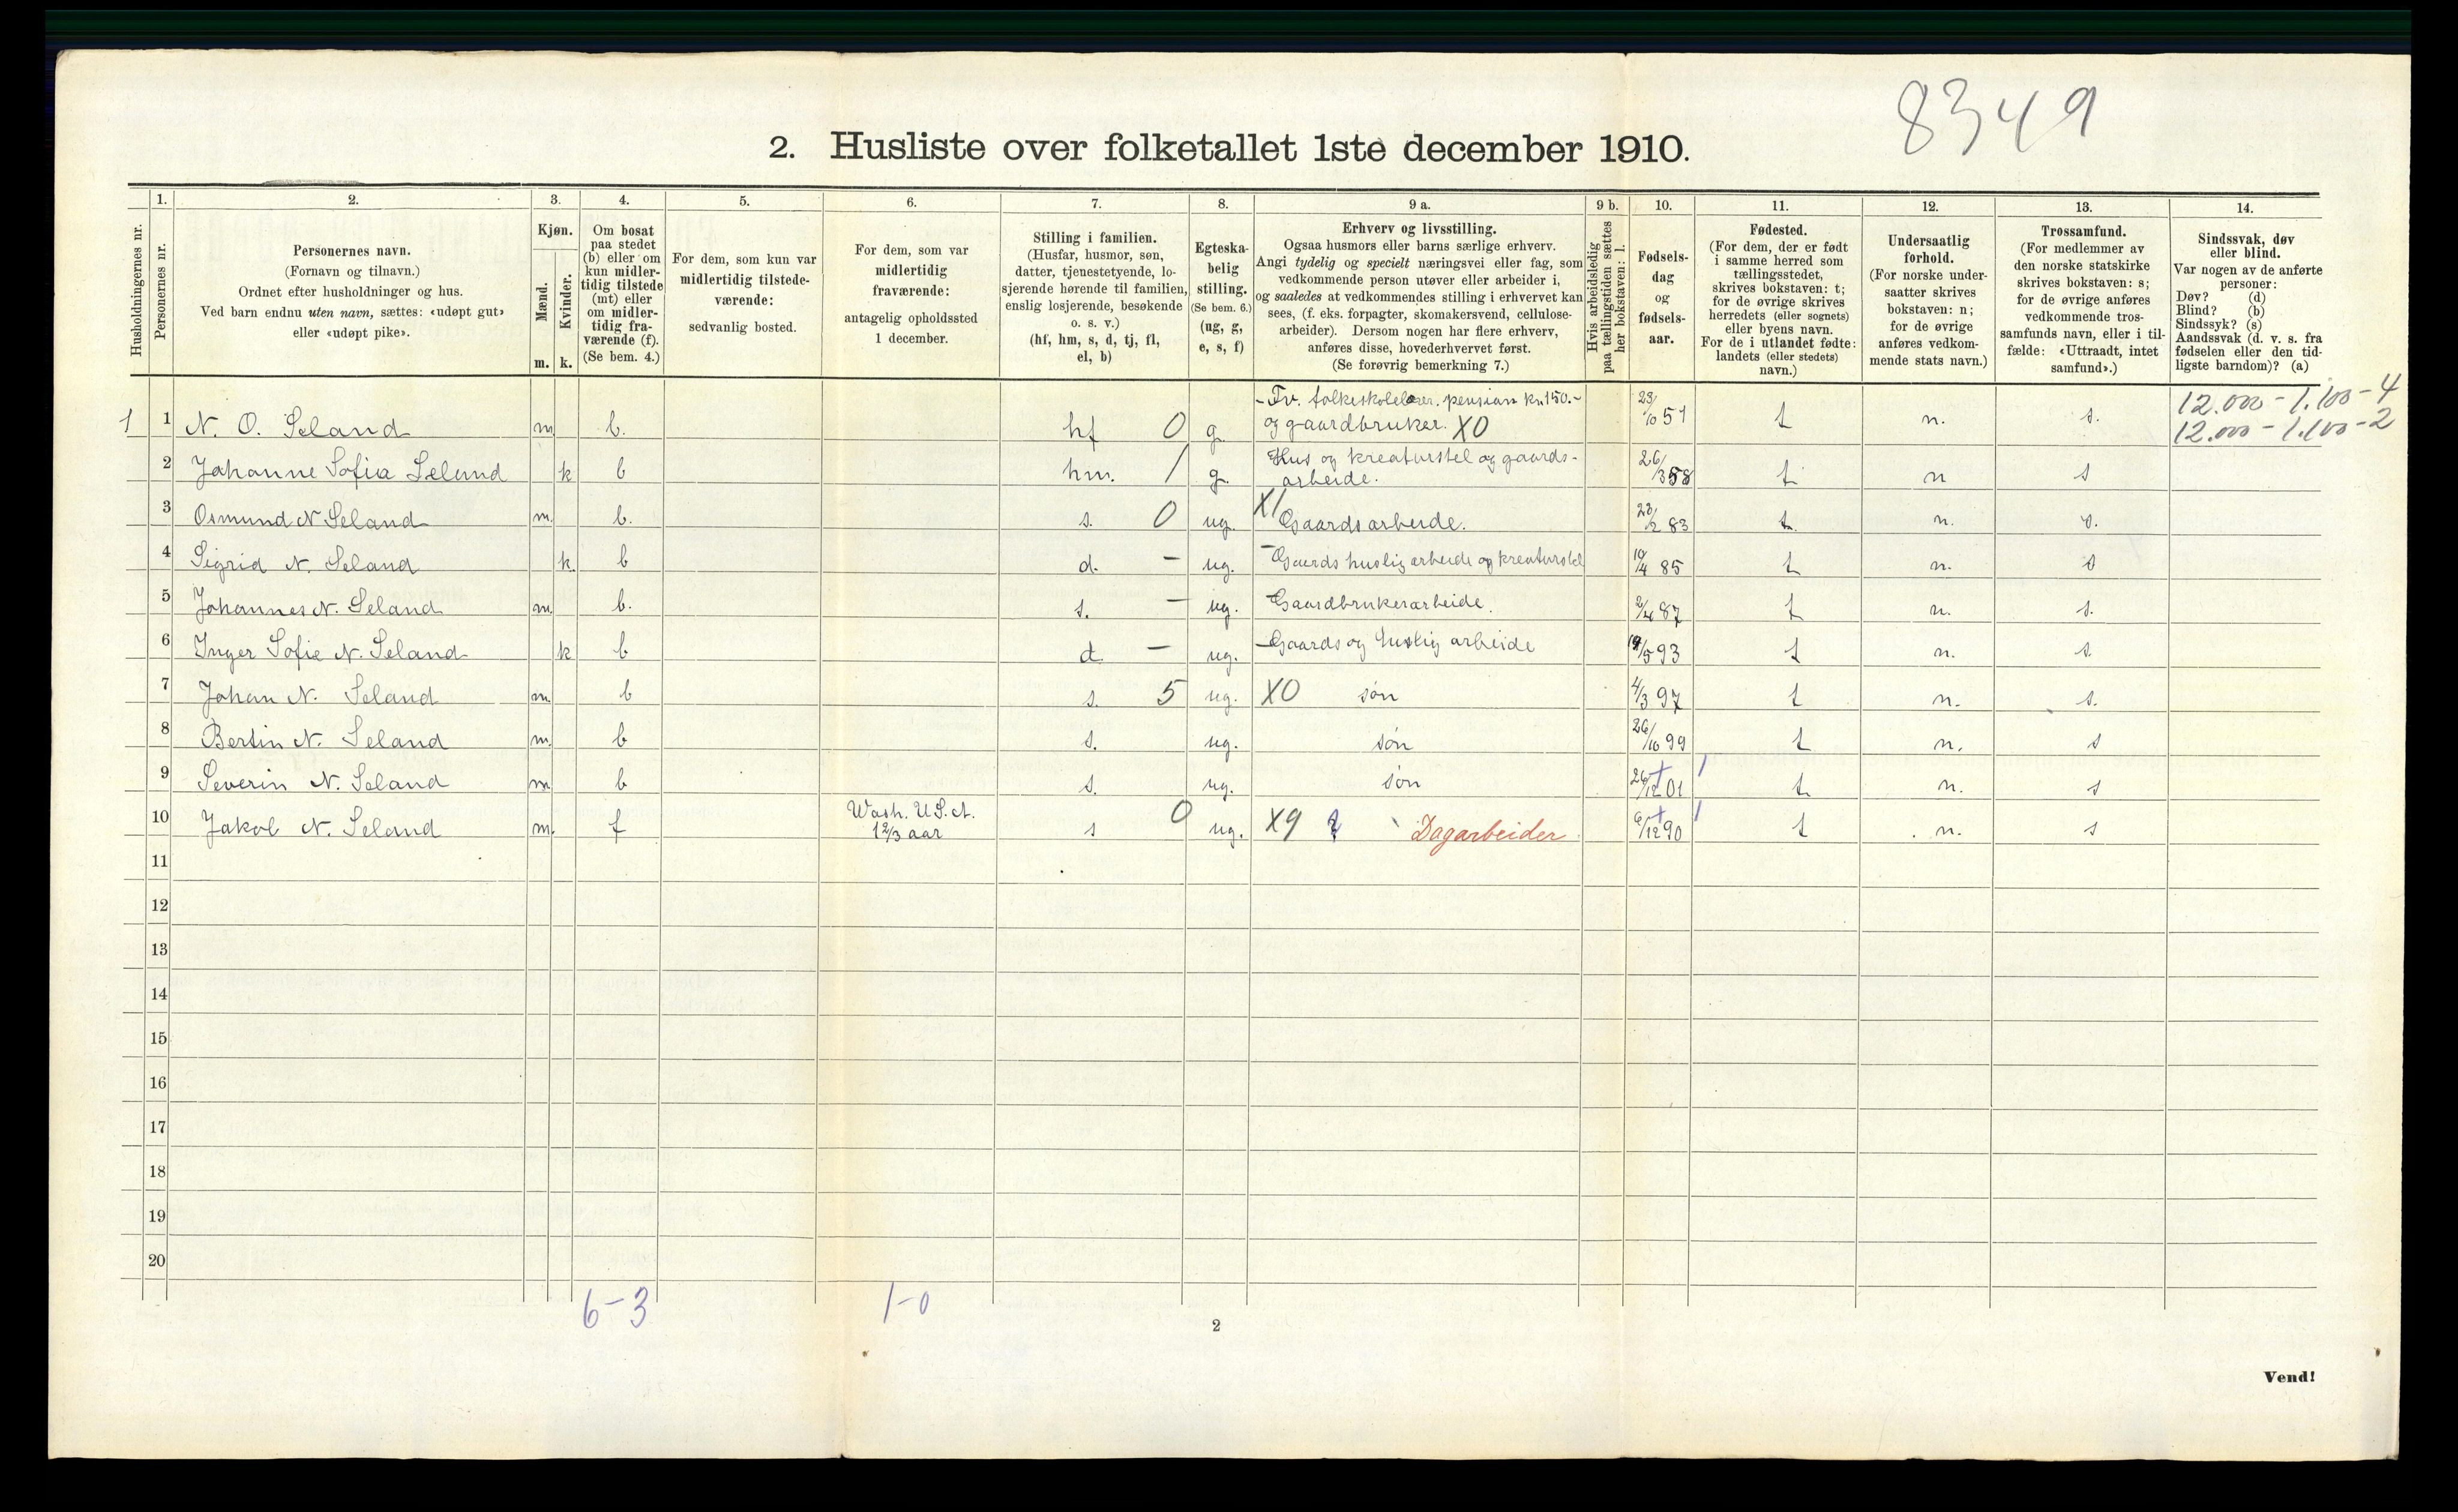 8349
2. Husliste over folketallet 1ste december 1910.
1. 2. 3. 4. 5. 6. 7. 8. 9 a. 9 b. 10. 11. 12. 13. 14.
Husholdningernes nr.
Personernes nr.
Personernes navn.
(Fornavn og tilnavn.)
Ordnet efter husholdninger og hus.
Ved barn endnu uten navn, sættes: «udøpt gut»
eller «udøpt pike».
Kjøn.
Mænd.
Kvinder.
m. k.
Om bosat
paa stedet
(b) eller om
kun midler-
tidig tilstede
(mt) eller
om midler-
tidig fra-
værende (f).
(Se bem. 4.)
For dem, som kun var
midlertidig tilstede-
værende:
sedvanlig bosted.
For dem, som var
midlertidig
fraværende:
antagelig opholdssted
1 december.
Stilling i familien.
(Husfar, husmor, søn,
datter, tjenestetyende, lo-
sjerende hørende til familien,
enslig losjerende, besøkende
o. s. v.)
(hf, hm, s, d, tj, fl,
el, b)
Egteska-
belig
stilling.
(Se bem. 6.)
(ug, g,
e, s, f)
Erhverv og livsstilling.
Ogsaa husmors eller barns særlige erhverv.
Angi tydelig og specielt næringsvei eller fag, som
vedkommende person utøver eller arbeider i,
og saaledes at vedkommendes stilling i erhvervet kan
sees, (f. eks. forpagter, skomakersvend, cellulose-
arbeider). Dersom nogen har flere erhverv,
anføres disse, hovederhvervet først.
(Se forøvrig bemerkning 7.)
Hvis arbeidsledig
paa tællingstiden sættes
her bokstaven: l.
Fødsels-
dag
og
fødsels-
aar.
Fødested.
(For dem, der er født
i samme herred som
tællingsstedet,
skrives bokstaven: t;
for de øvrige skrives
herredets (eller sognets)
eller byens navn.
For de i utlandet fødte:
landets (eller stedets)
navn.)
Undersaatlig
forhold.
(For norske under-
saatter skrives
bokstaven: n;
for de øvrige
anføres vedkom-
mende stats navn.)
Trossamfund.
(For medlemmer av
den norske statskirke
skrives bokstaven: s;
for de øvrige anføres
vedkommende tros-
samfunds navn, eller i til-
fælde: «Uttraadt, intet
samfund».)
Sindssvak, døv
eller blind.
Var nogen av de anførte
personer:
Døv? (d)
Blind? (b)
Sindssyk? (s)
Aandssvak (d. v. s. fra
fødselen eller den tid-
ligste barndom)? (a)
12.000 - 1.100 - 4
12.000 - 1.100 - 2
1 1 N. O. Seland m. b. hf 0 g. - Fv. folkeskolelærer. pension kr. 150.-
og gaardbruker. X0 23/10 51 t n. s.
2 Johanne Sofia Seland k b hm. 1 g. Hus og kreaturstel og gaards-
arbeide. 26/3 58 t n s
3 Osmund N Seland m. b. s. 0 ug. X1 Gaardsarbeide. 23/2 83 t. n. s.
4 Sigrid N. Seland k. b d. - ug. - Gaards huslig arbeide og kreaturstel 19/4 85 t n. s
5 Johannes N. Seland m. b. s. - ug. - Gaardbrukerarbeide. 2/4 87 t n. s.
6 Inger Sofie N. Seland k b d. - ug. - Gaards og huslig arbeide 19/5 93 t n. s.
7 Johan N. Seland m. b s. 5 ug. X0 søn 4/3 97 t n. s.
8 Bertin N. Seland m. b s. ug. søn 26/10 99 t n. s
9 Severin N. Seland m b s. ug. søn 26/12 01 t. n. s
10 Jakob N. Seland m. f Wash. U.S.A.
1 2/3 aar s 0 ug. X9 Dagarbeider 6/12 90 t n. s
11
12
13
14
15
16
17
18
19
20
6-3 1-0
2
Vend!